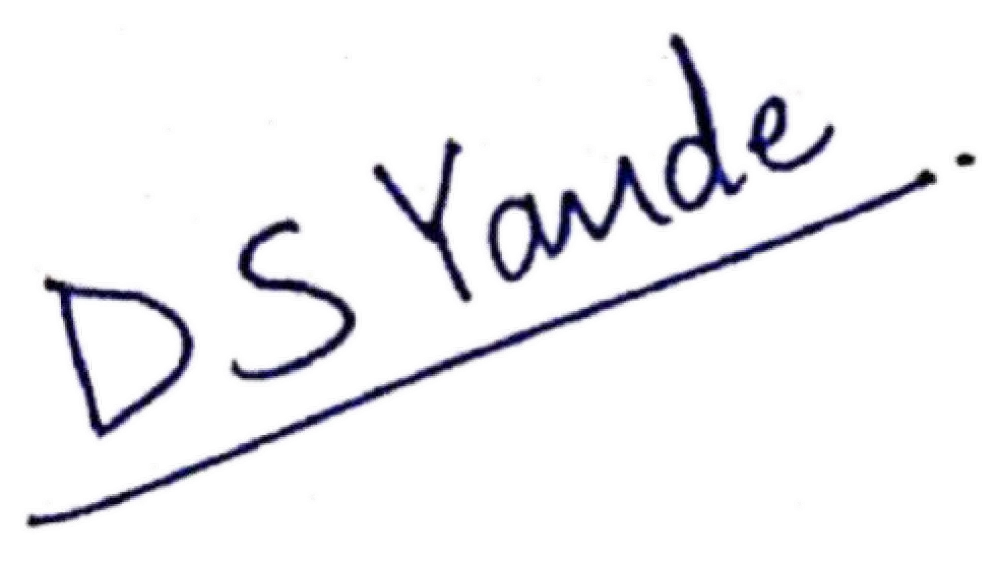 D S Yande